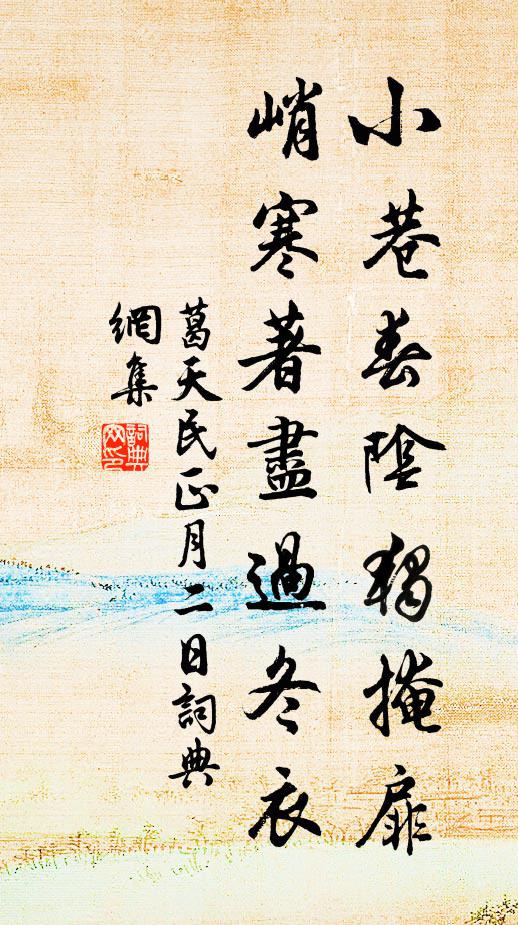 小巷春陰獨掩扉
峭寒著盡過冬衣
葛天民正月二日詞典
網集
詞典